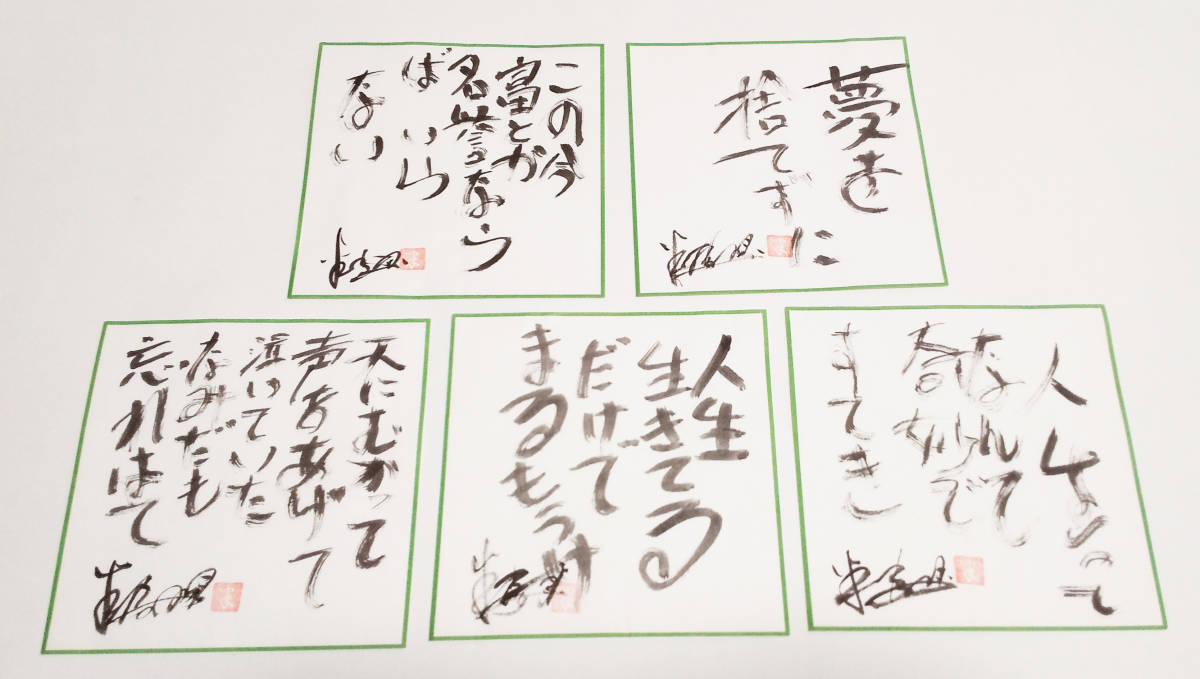 夢を
捨てずに
この今
富とか
名誉なら
ばいら
ない
人生って
なんて
奇妙で
すてき
人生
生きてる
だけで
まるもうけ
天にむかって
声をあげて
泣いていた
なみだも
忘れはて